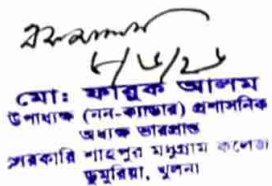 ৮/৬/২৬
মো: ফারুক আলম
উপাধ্যক্ষ (নন-ক্যাডার) প্রশাসনিক
অধ্যক্ষ ভারপ্রাপ্ত
সরকারি শাহপুর মধুগ্রাম কলেজ
ডুমুরিয়া, খুলনা